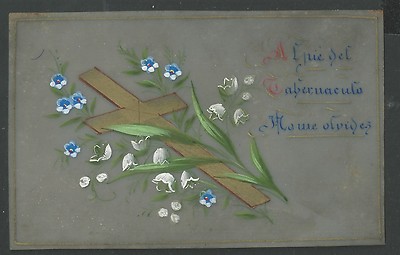 Al pie del
Tabernaculo
No me olvides